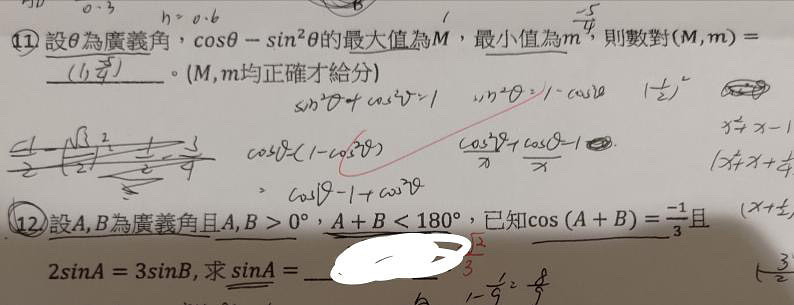 0.3 h = 0.6
1 -5/4
11. 設θ為廣義角，cosθ − sin²θ的最大值為M，最小值為m，則數對(M,m) =
(1, -5/4) 。(M,m均正確才給分)
sin²θ + cos²θ = 1 sin²θ = 1 - cos²θ (1/2)²
x² + x - 1
cosθ - (1 - cos²θ) cos²θ + cosθ - 1
x² + x + 1/4
= cosθ - 1 + cos²θ
12. 設A,B為廣義角且A,B > 0°，A + B < 180°，已知cos (A + B) = -1/3 且
2sinA = 3sinB, 求 sinA =
1 - 1/9 = 8/9